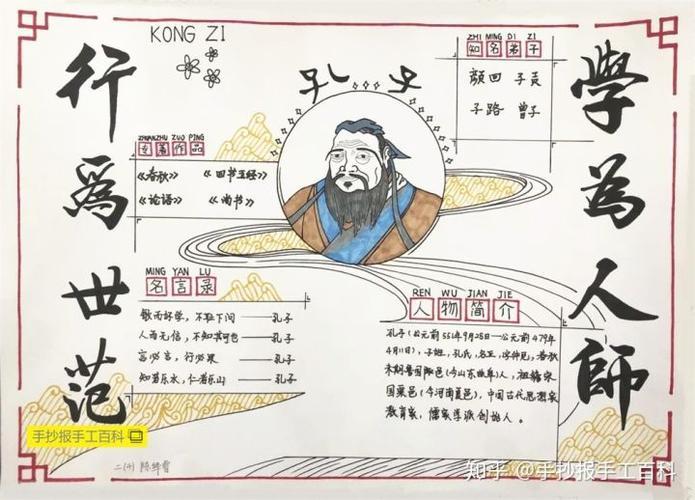 KONG ZI
孔子
學为人師
行為世范
ZHI MING DI ZI
知名弟子
颜回 子贡
子路 曾子
ZHUANZHU ZUO PING
专著作品
《春秋》 《四书五经》
《论语》 《尚书》
MING YAN LU
名言录
敏而好学，不耻下问——孔子
人而无信，不知其可也——孔子
言必言，行必果——孔子
知者乐水，仁者乐山——孔子
REN WU JIAN JIE
人物简介
孔子（公元前551年9月28日—公元前479年
4月11日），子姓，孔氏，名丘，字仲尼，春秋
末期鲁国陬邑（今山东曲阜）人，祖籍宋
国栗邑（今河南夏邑），中国古代思想家
教育家，儒家学派创始人。
手抄报手工百科
二（十） 陈
知乎 @手抄报手工百科